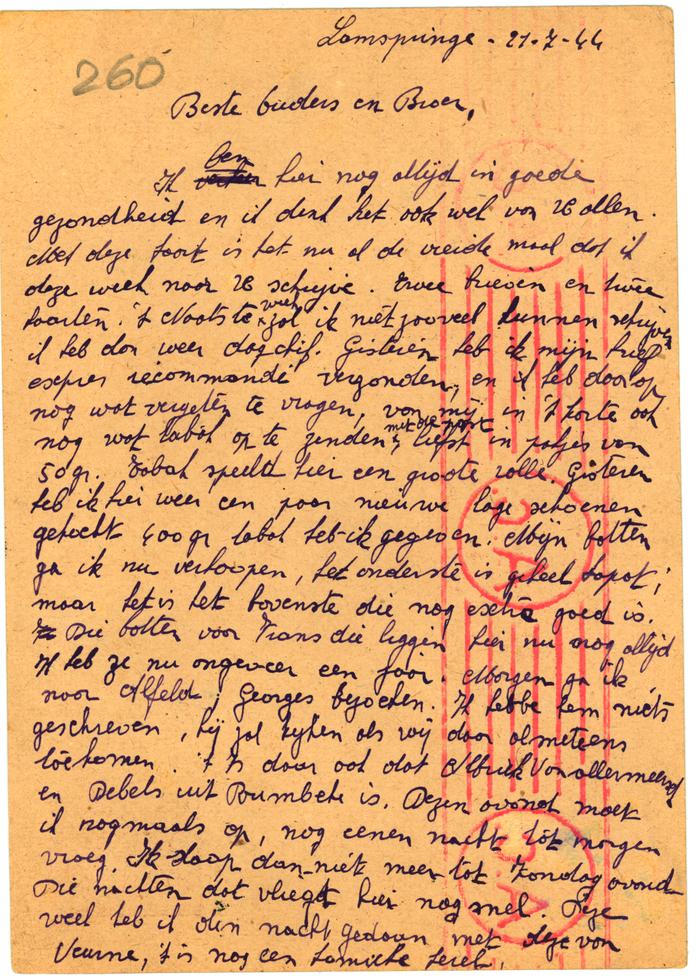 Lamspringe - 21-7-44
260
Beste ouders en Broer,
Ik ben hier nog altijd in goede
gezondheid en ik denk het ook wel van U allen.
Met deze kaart is het nu al de vierde maal dat ik
deze week naar U schrijve. Twee brieven en twee
kaarten. 't Naaste week zal ik niet zooveel kunnen schrijven
ik heb dan weer dagchif. Gisteren heb ik mijn brief
expres recommandé verzonden, en ik heb daarop
nog wat vergeten te vragen, van mij in 't korte ook
nog wat tabak op te zenden met die post liefst in pakjes van
50 gr. Tabak speelt hier een groote rolle. Gisteren
heb ik hier weer een paar nieuwe lage schoenen
gekocht 400 gr tabak heb ik gegeven. Mijn botten
ga ik nu verkoopen, het onderste is geheel kapot,
maar het is het bovenste die nog extra goed is.
Die botten voor Frans die liggen hier nu nog altijd
Ik heb ze nu ongeveer een jaar. Morgen ga ik
naar Alfeld, Georges bezoeken. Ik hebbe hem niets
geschreven, hij zal kijken als wij daar almeteens
toekomen. 't Is daar ook dat
en Debels uit is. Dezen avond moet
ik nogmaals op, nog eenen nacht tot morgen
vroeg. Ik slaap dan niet meer tot Zondag avond
Die nachten dat vliegt hier nog snel. Deze
week heb ik den nacht gedaan met deze van
Veurne, 't is nog een komieke
C.A
C.A